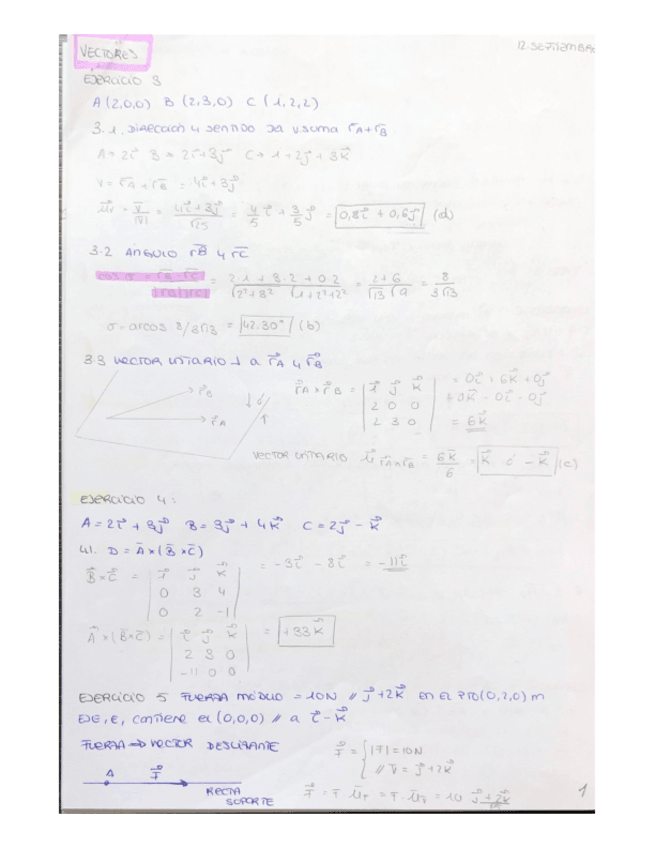 VECTORES
12 SEPTIEMBRE
EJERCICIO 3
A (2,0,0) B (2,3,0) C (1,2,2)
3.1. Dirección y sentido va v.suma r⃗A + r⃗B
A = 2i⃗ B → 2i⃗+3j⃗ C → 1+2j⃗ + 3k⃗
v = r⃗A + r⃗B = 4i⃗ + 3j⃗
u⃗v = v⃗/|v⃗| = (4i⃗+3j⃗)/√25 = 4/5 i⃗ + 3/5 j⃗ = 0,8i⃗ + 0,6j⃗ (d)
3.2 ÁNGULO r⃗B y r⃗C
cos σ = (r⃗B · r⃗C)/(|rB||rC|) = (2·1 + 3·2 + 0·2)/(√2²+3² √1+2²+2²) = (2+6)/(√13 √9) = 8/(3√13)
σ = arcos 8/3√13 = 42.30° (b)
3.3 VECTOR UNITARIO ⊥ a r⃗A y r⃗B
r⃗B
r⃗A
r⃗A × r⃗B = | i⃗ j⃗ k⃗ | = 0i⃗ + 6k⃗ + 0j⃗
2 0 0 + 0k⃗ - 0i⃗ - 0j⃗
2 3 0 = 6k⃗
VECTOR UNITARIO u⃗ rA×rB = 6k⃗/6 = k⃗ ó -k⃗ (c)
EJERCICIO 4:
A = 2i⃗ + 3j⃗ B = 3j⃗ + 4k⃗ C = 2j⃗ - k⃗
4.1. D = A⃗ × (B⃗ × C⃗)
B⃗ × C⃗ = | i⃗ j⃗ k⃗ | = -3i⃗ - 8i⃗ = -11i⃗
0 3 4
0 2 -1
A⃗ × (B⃗×C⃗) = | i⃗ j⃗ k⃗ | = +33k⃗
2 3 0
-11 0 0
EJERCICIO 5 FUERZA MÓDULO = 10N // j⃗+2k⃗ en el PTO (0,2,0) m
EJE, E, contiene el (0,0,0) // a i⃗ - k⃗
FUERZA ⇒ VECTOR DESLIZANTE
F⃗ = { |F| = 10N
// v⃗ = j⃗+2k⃗
A F⃗
RECTA
SOPORTE
F⃗ = F · u⃗F = F · u⃗v = 10 (j⃗+2k⃗)/√5
1